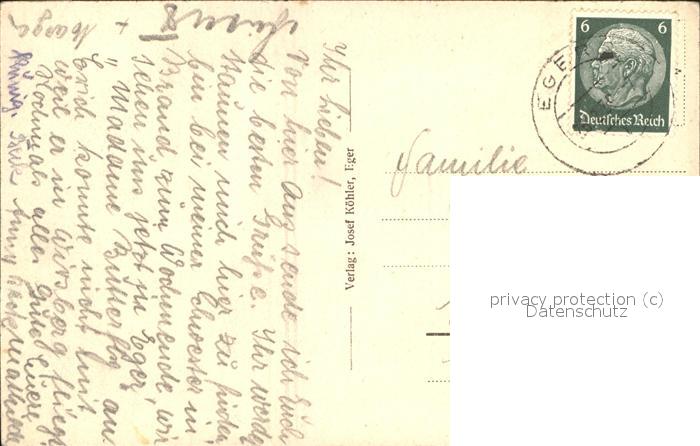 Ihr Lieben!
Von hier aus sende ich Euch
die besten Grüße. Ihr werdet
staunen mich hier zu finden
bin bei meiner Chwester in
Brand zum Wochenende, wir
sehen uns jetzt in Eger,
"Madame Butterfly an.
Erich konnte nicht mit
weil er in Wirsberg fliegt
Nochmals alles Gute Eure
Anny
Verlag: Josef Köhler, Eger
Familie
EGER
6 6
Deutsches Reich
privacy protection (c)
Datenschutz